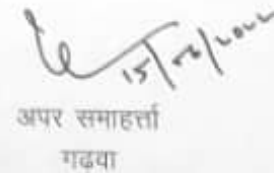 15/
अपर समाहर्त्ता
गढ़वा